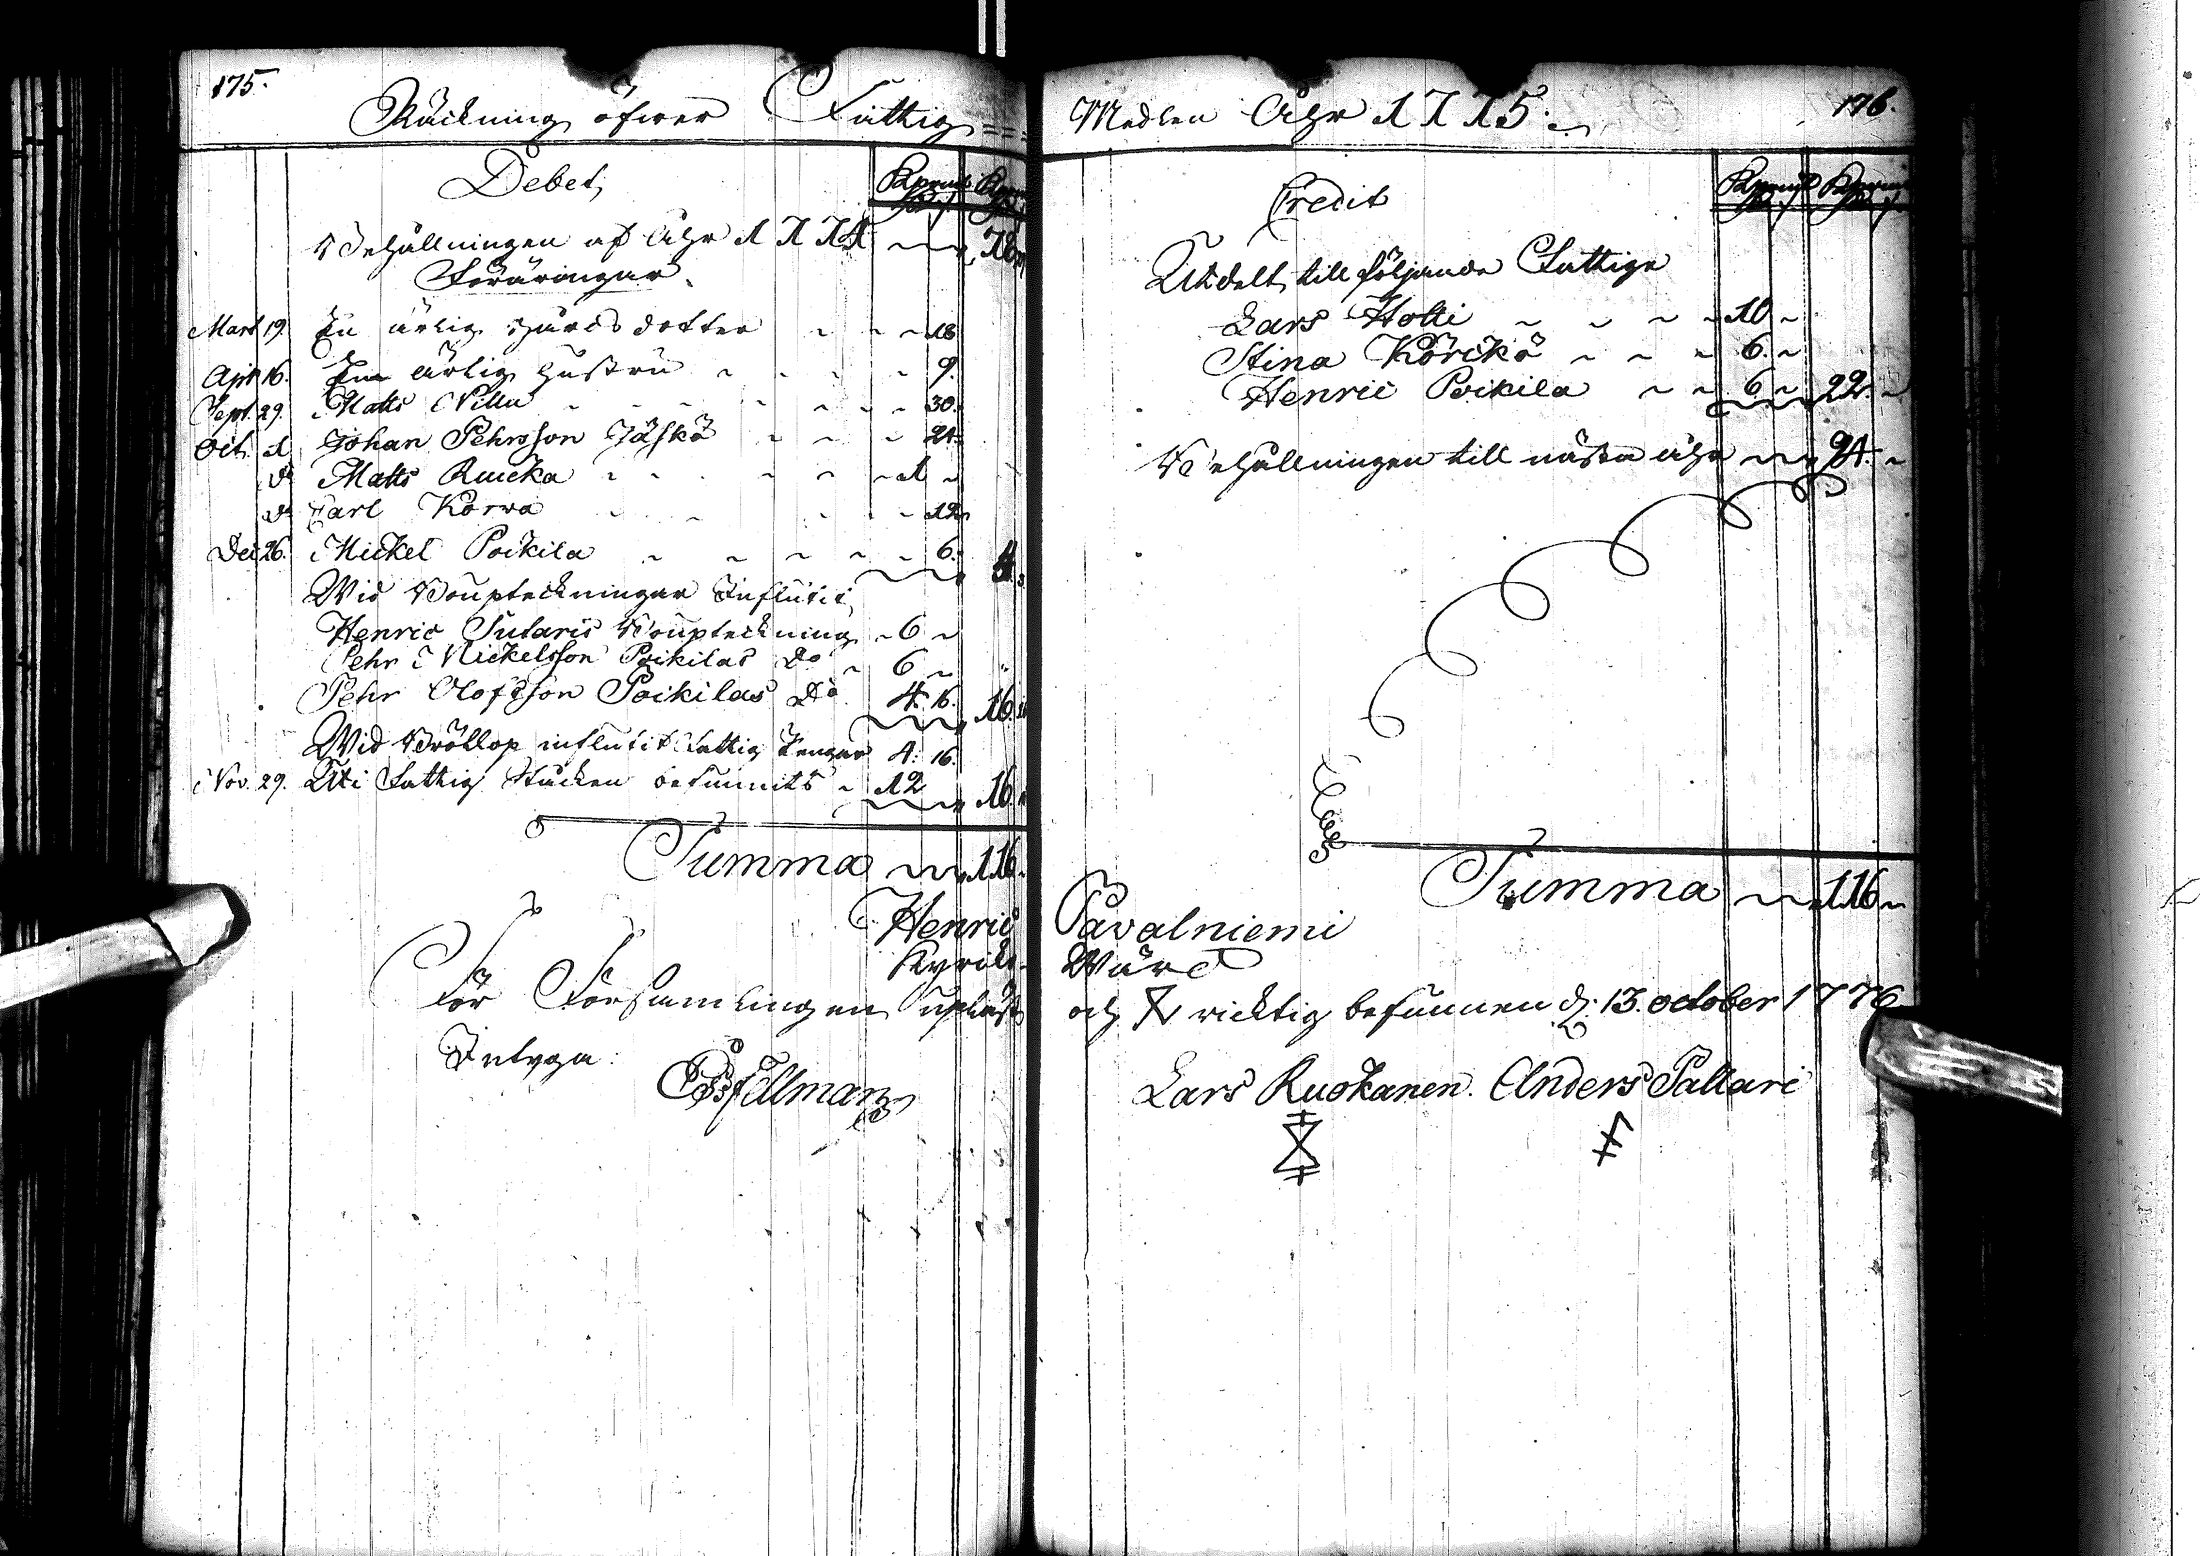 175.
Räckning öfwer Fattig
Debet,
Behållningen af Åhr 1774 78
Föräringar.
Mart 19. En ärlig Gårds dotter 18
Apr. 16. En ärlig hustru 9.
Sept. 29. Matts Nilla 30.
Oct. 1 Johan Pehrsson Jäskö 24.
d Matts Ruicka 1
d Carl Korwa 12
Dec 26. Mickel Poikila 6. 4
Wid Boupteckningar Influtit,
Henric Sutaris Boupteckning 6
Pehr Mickelsson Poikilas Do 6
Pehr Olofsson Poikilas Do 4. 16. 16.
Wid Bröllop influtit Fattig Pengar 4. 16.
Nov. 29. Uti Fattig Stucken befunnits 12 16
Summa 116
Henric
Kyrck-
För Församlingen upläst
Intyga:
Fellman
Medlen Åhr 1775. 176.
Credit
Utdelt till följande Fattige
Lars Holti 10
Stina Körckö 6.
Henric Poikila 6 22.
Behållningen till nästa åhr 94.
Summa 116
Pavalniemi
Wärd
och richtig befunnen d. 13. october 1776
Lars Ruokanen. Anders Pallari